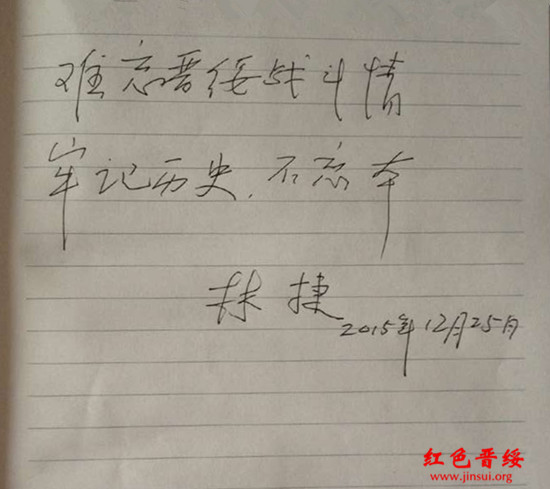 难忘晋绥战斗情
牢记历史、不忘本
林捷
2015年12月25日
红色晋绥
www.jinsui.org